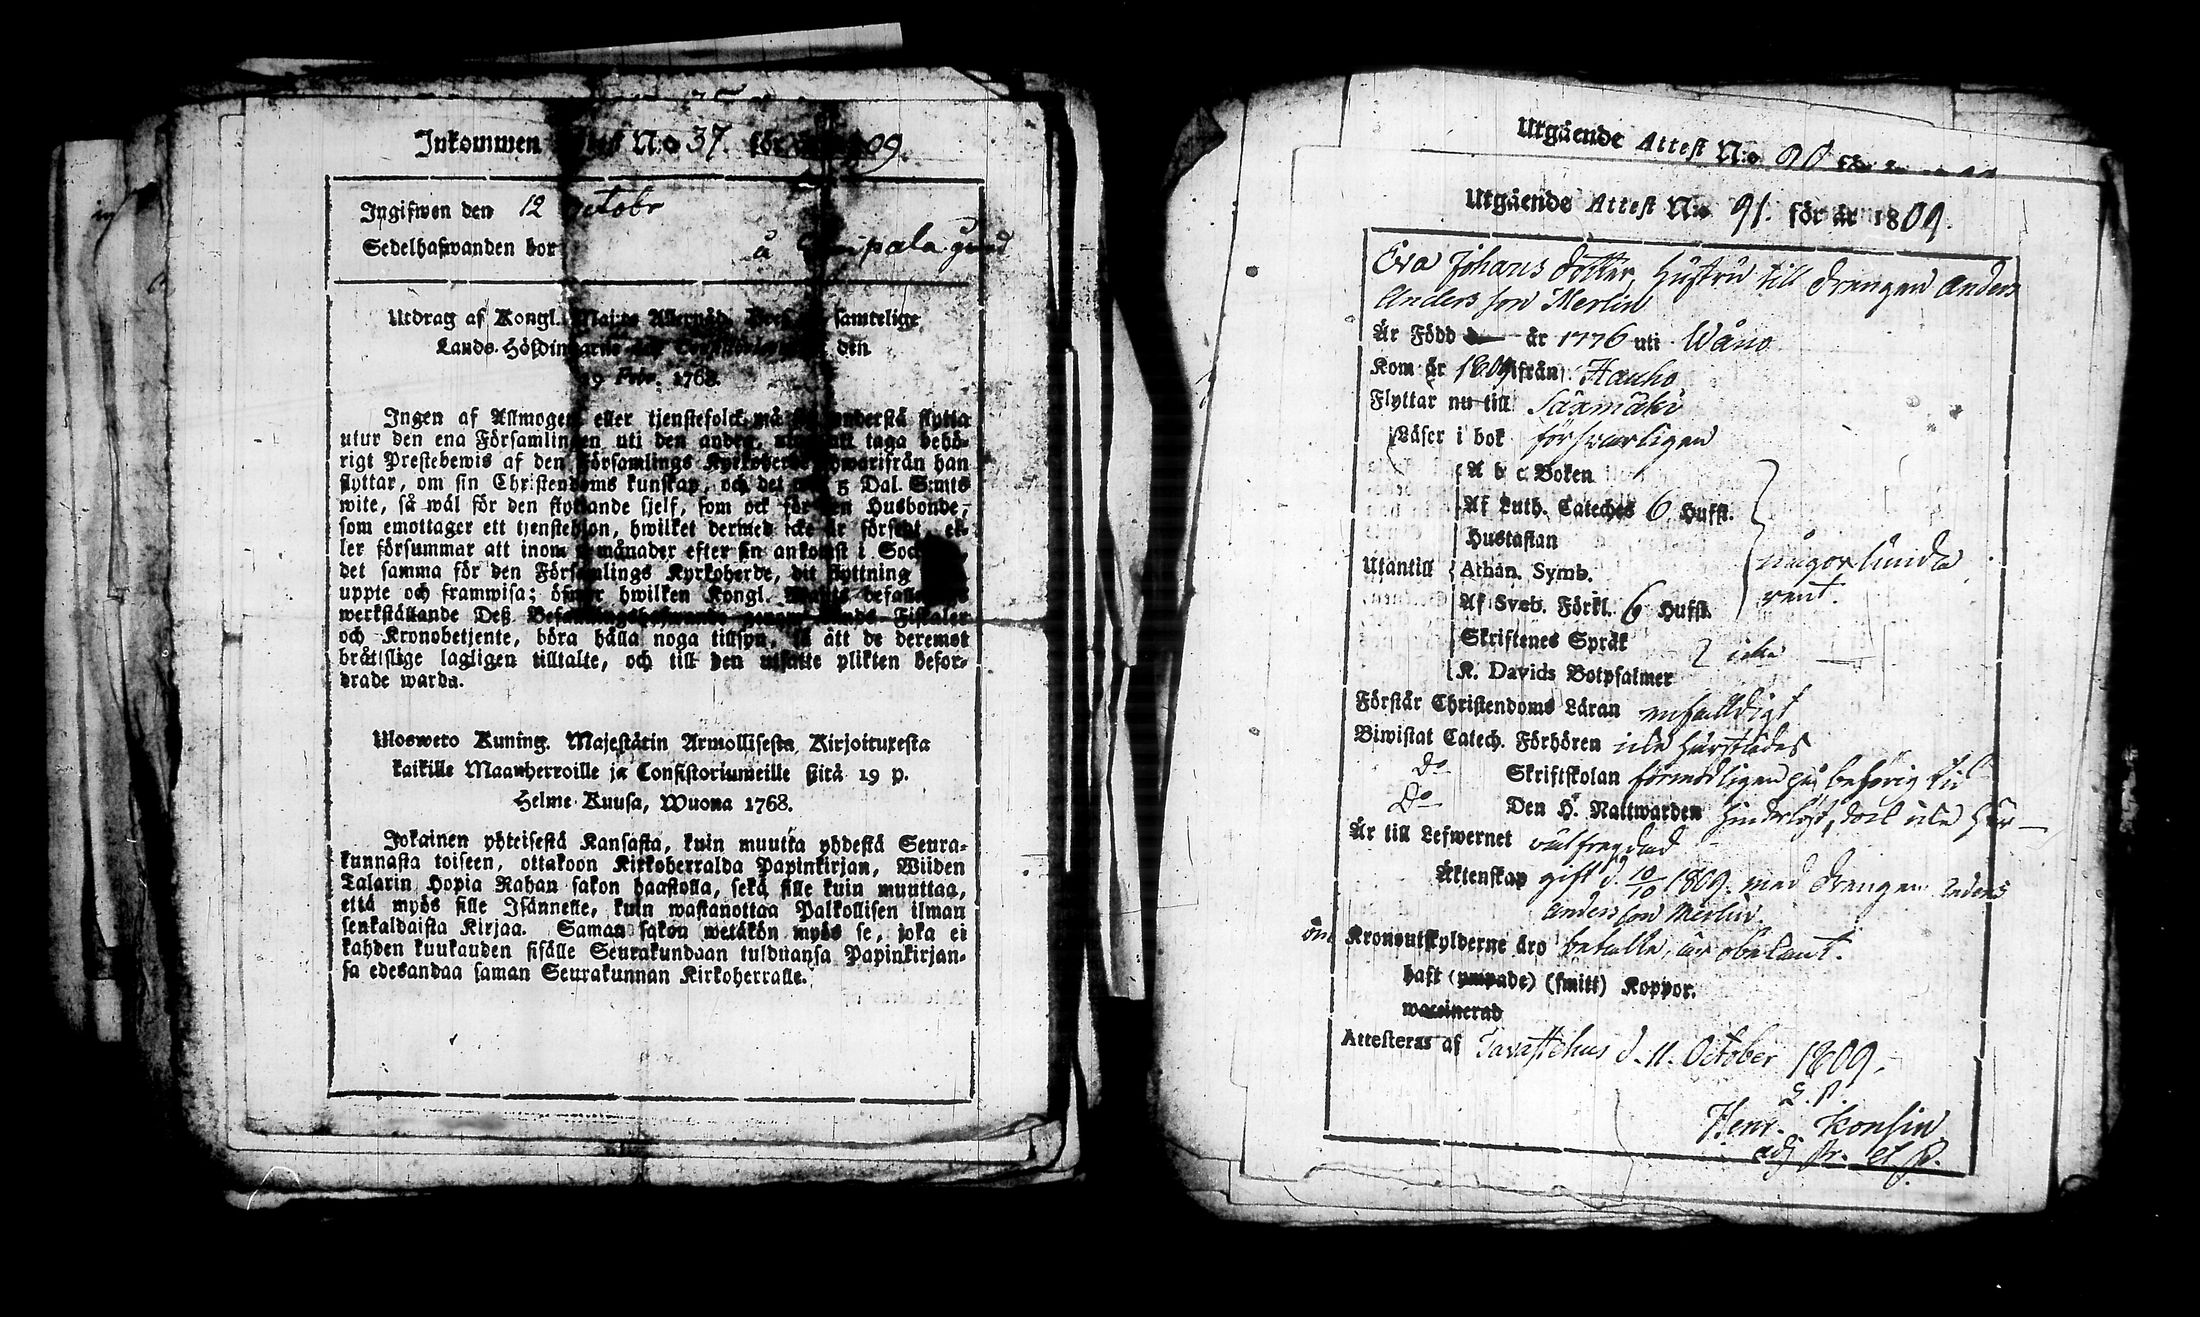 Inkommen N:o 37. för 09.
Ingifwen den 12 octobr
Sedelhafwanden bor å gård
Utdrag af Kongl. Maj:ts samtelige
Lands-Höfdingarne den
19 Febr. 1768.
Ingen af Allmogen eller tjenstefolck må understå flytta
utur den ena Församlingen uti den andra, taga behö-
rigt Prestebewis af den Församlings Kyrkoherde hwarifrån han
flyttar, om sin Christendoms kunskap, och det 5 Dal. S:mts
wite, så wäl för den flyttande sjelf, som ock för den Husbonde,
som emottager ett tjenstehjon, hwilket dermed icke är försedt, el-
ler försummar att inom månader efter sin ankomst i
det samma för den Församlings Kyrkoherde, dit flyttning
uppte och framwisa; öfwer hwilken Kongl. befalln
werkställande Deß Befallningshafwande genom Lands-Fiskaler
och Kronobetjente, böra hålla noga tillsyn, så att de deremot
bråttslige lagligen tilltalte, och till den utsatte plikten befor-
drade warda.
Uloswero Kuning. Majestätin Armollisesta Kirjoituxesta
kaikille Maanherroille ja Consistoriumeille sitä 19 p.
Helme-Kuusa, Wuona 1768.
Jokainen yhteisestä Kansasta, kuin muutta yhdestä Seura-
kunnasta toiseen, ottakoon Kirkoherralda Papinkirjan, Wiiden
Talarin Hopia Rahan sakon haastolla, sekä sille kuin muuttaa,
että myös sille Isännelle, kuin wastanottaa Palkollisen ilman
senkaldaista Kirjaa. Saman sakon wetäkön myös se, joka ei
kahden kuukauden sisälle Seurakundaan tulduansa Papinkirjan-
sa edesandaa saman Seurakunnan Kirkoherralle.
Utgående Attest N:o 90 för
Utgående Attest N:o 91. för år 1809.
Eva Johans dotter, Hustru till drängen Anders
Andersson Merlin
Är Född år 1776 uti Wåno
Kom år 1809 ifrån Hauho
Flyttar nu till Säxmäki
Läser i bok försvarligen
A b c Boken
Af Luth. Cateches 6 Hufst.
Hustaflan
Utantill Athan. Symb.
någorlunda
rent.
Af Sveb. Förkl. 6 Hufst.
Skriftenes Språk
icke
K. Davids Botpsalmer
Förstår Christendoms Läran enfaldigt
Biwistat Catech. Förhören icke härstädes
Do Skriftskolan förmodligen på behörig tid
Do Den H. Nattwarden hinderlöst, dock icke här
Är till Lefwernet wälfrägdad
Äktenskap gift d. 10/10 1809. med drängen Anders
Andersson Merlin.
Kronoutskylderne äro betalte, är obekant.
haft (ympade) (smitt) Koppor.
waccinerad
Attesteras af Tavastehus d. 11. October 1809.
L. P.
Henr. Konsin
adj. Pr.